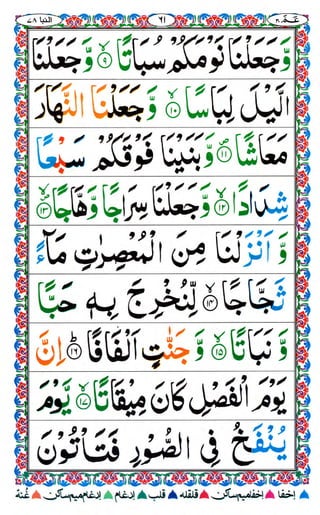 عَمَّ ٣٠ ٢١ النبا ٧٨
وَّجَعَلْنَا نَوْمَكُمْ سُبَاتًا ۙ﴿۹﴾ وَّجَعَلْنَا
الَّيْلَ لِبَاسًا ۙ﴿۱۰﴾ وَّجَعَلْنَا النَّهَارَ
مَعَاشًا ۪﴿۱۱﴾ وَّبَنَيْنَا فَوْقَكُمْ سَبْعًا
شِدَادًا ۙ﴿۱۲﴾ وَّجَعَلْنَا سِرَاجًا وَّهَّاجًا ۙ﴿۱۳﴾
وَّاَنْزَلْنَا مِنَ الْمُعْصِرٰتِ مَآءً
ثَجَّاجًا ۙ﴿۱۴﴾ لِّنُخْرِجَ بِهٖ حَبًّا
وَّنَبَاتًا ۙ﴿۱۵﴾ وَّجَنّٰتٍ اَلْفَافًا ؕ﴿۱۶﴾ اِنَّ
يَوْمَ الْفَصْلِ كَانَ مِيْقَاتًا ۙ﴿۱۷﴾ يَّوْمَ
يُنْفَخُ فِى الصُّوْرِ فَتَاْتُوْنَ
اخفا اخفامیم ساکن قلقله قلب ادغام ادغام میم ساکن غنة